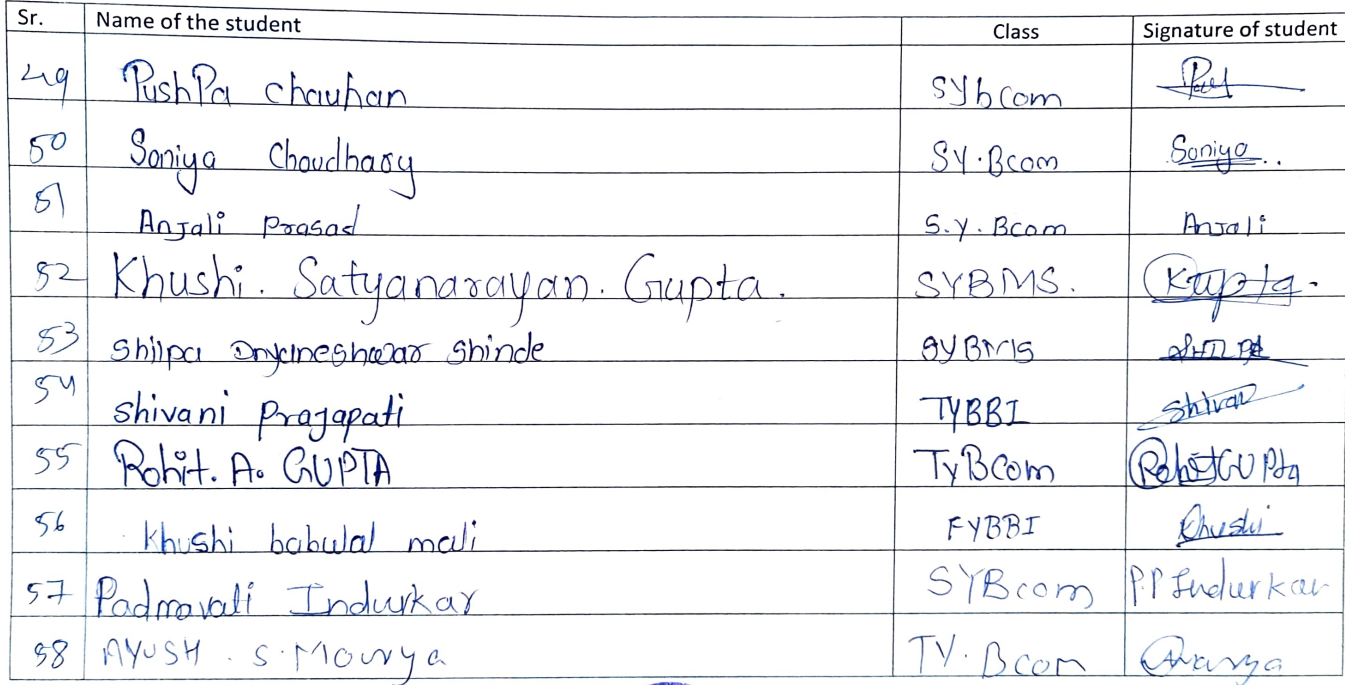 Sr. Name of the student Class Signature of student
49 PushPa chauhan SYbcom
50 Soniya Choudhary SY.Bcom Soniya..
51 Anjali Prasad S.Y.Bcom Anjali
52 Khushi. Satyanarayan. Gupta. SYBMS. Kgupta.
53 Shilpa Dnyaneshwar Shinde SYBMS
54 Shivani Prajapati TYBBI Shivani
55 Rohit. A. GUPTA TyBCom Rohit GUPta
56 Khushi babulal mali FYBBI Khushi
57 Padmavati Indurkar SYBcom P.P Indurkar
58 AYUSH . S. Mourya TY. Bcom